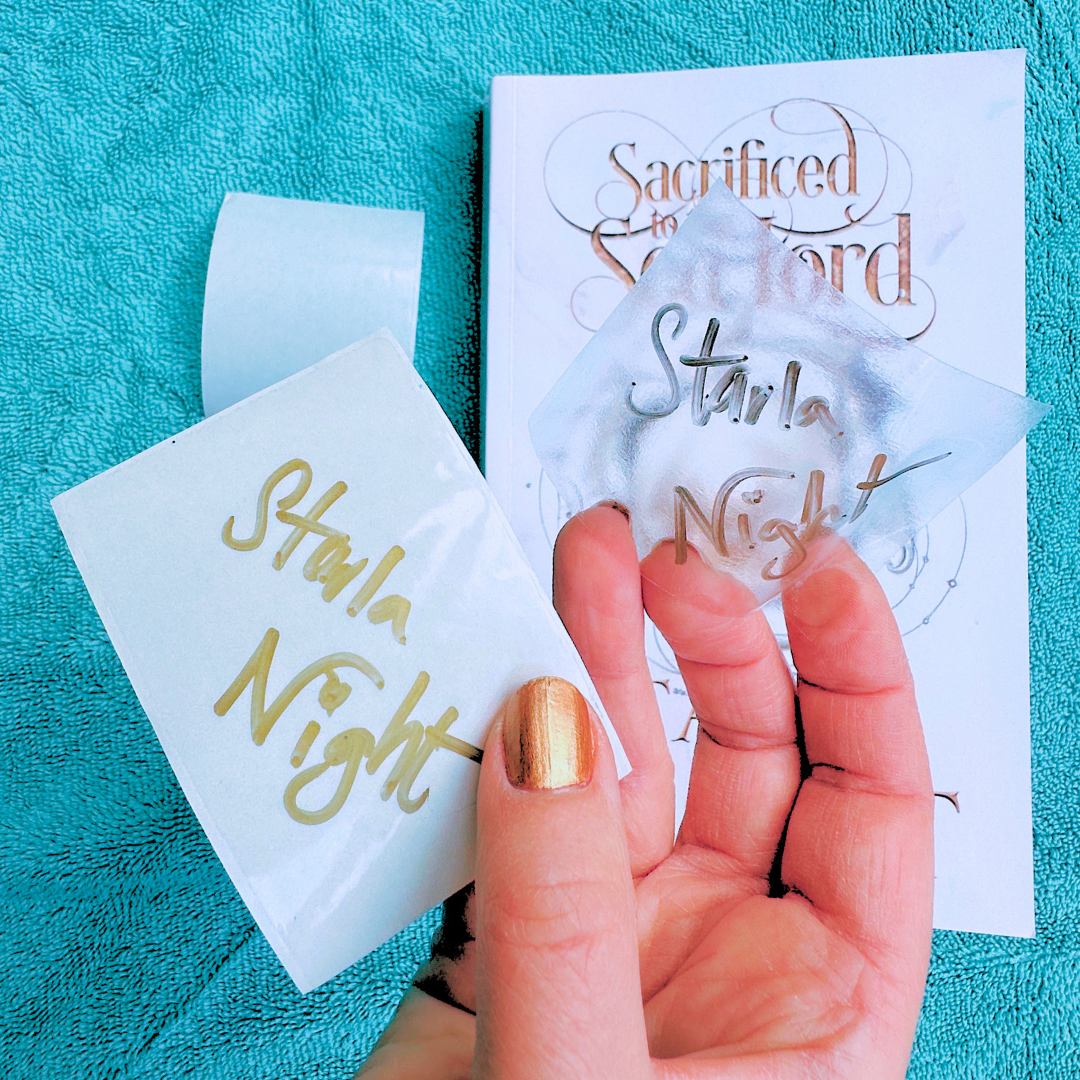 Sacrificed
to
Starla
Night
Starla
Night